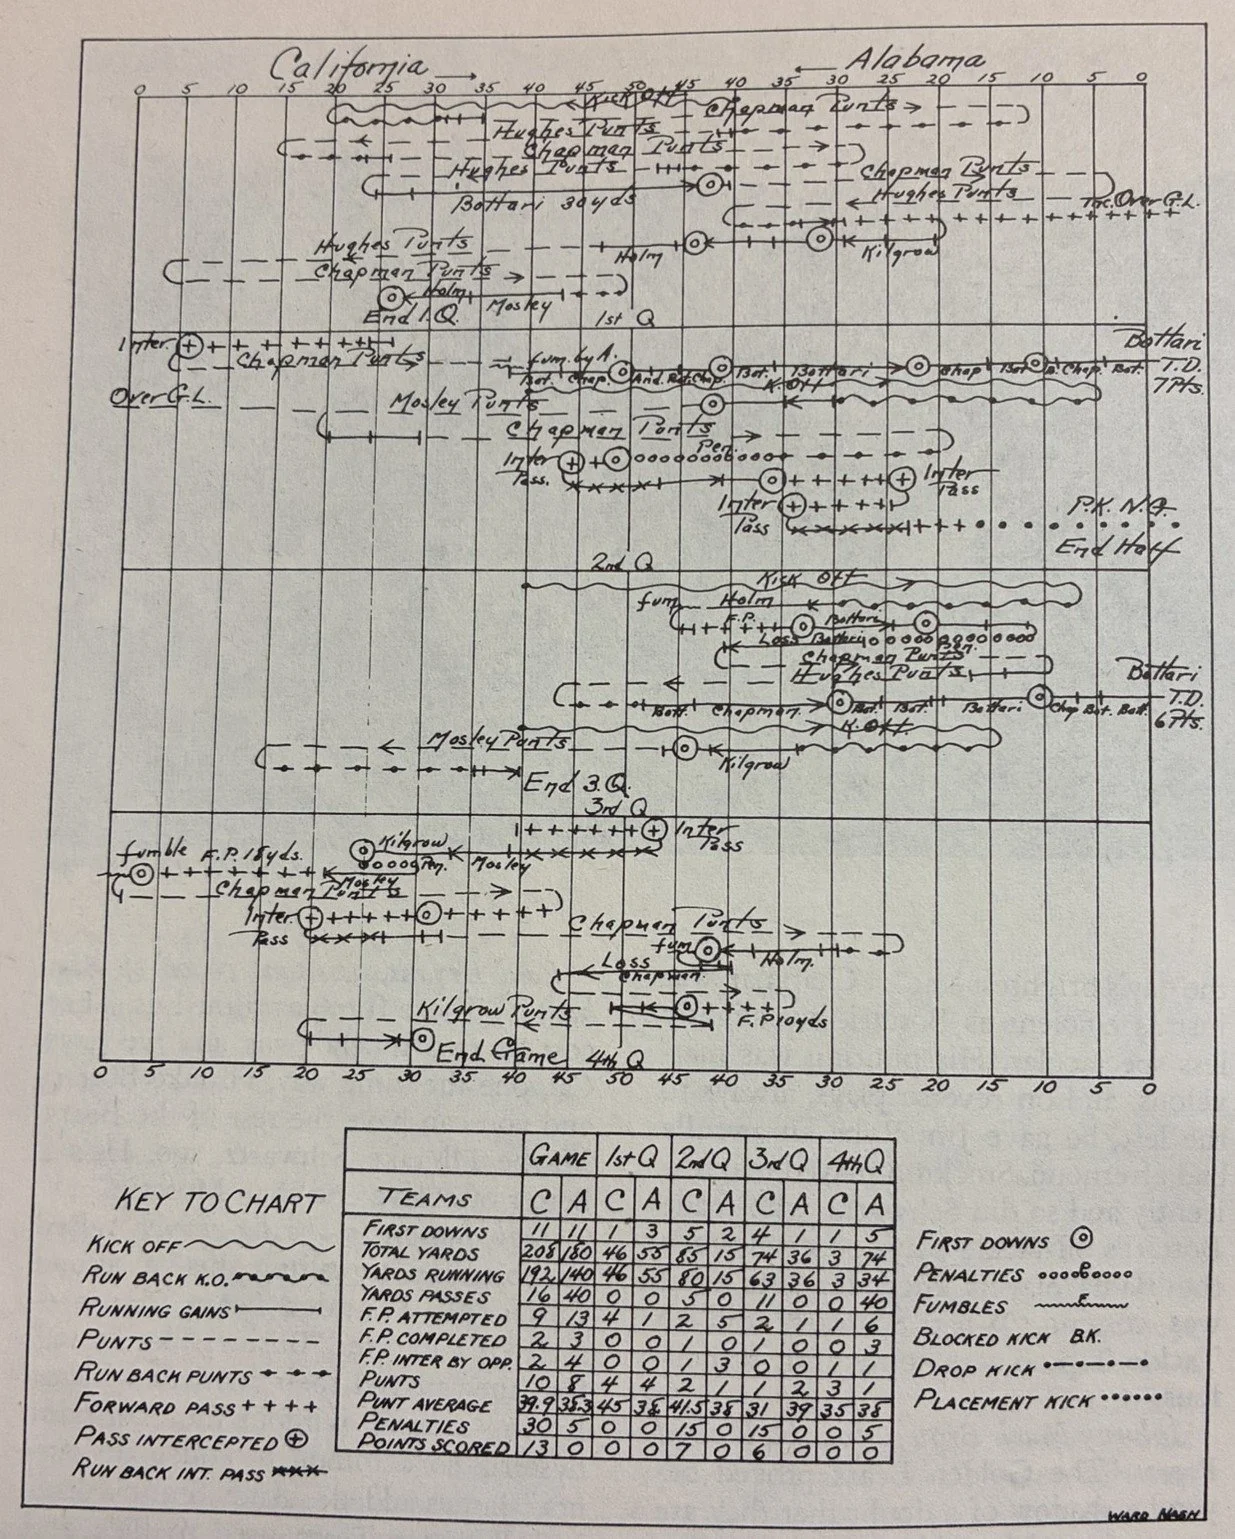 California Alabama
0 5 10 15 20 25 30 35 40 45 50 45 40 35 30 25 20 15 10 5 0
Kick Off
Chapman Punts
Hughes Punts
Chapman Punts
Hughes Punts
Chapman Punts
Bottari 30yds
Hughes Punts
Inc. Over G.L.
Hughes Punts
Holm
Kilgrow
Chapman Punts
Holm Mosley
End 1.Q.
1st Q
Inter.
Chapman Punts
fum. by A.
Bottari
Bot. Chap. And. Bot. Chap. Bot. Bottari Chap Bot. B. Chap. Bot. T.D.
K. Off
7Pts.
Over G.L.
Mosley Punts
Chapman Punts
Pen.
Inter
Pass.
Inter
Pass
Inter
Pass
P.K. N.G.
End Half
2nd Q
Kick Off
fum. Holm
F.P. Bottari
Loss Bottari Pen.
Chapman Punts
Hughes Punts
Bottari
Bott. Chapman. Bot. Bot. Bottari Chap Bot. Bott. T.D.
6Pts.
K. Off.
Mosley Punts
Kilgrow
End 3.Q.
3rd Q
Inter
Pass
Kilgrow
Mosley
Pen.
fumble F.P. 18yds.
Mosley
Chapman Punts
Inter.
Pass
Chapman Punts
fum.
Holm.
Loss
Chapman.
Kilgrow Punts
F.P 10yds
End Game 4th Q
0 5 10 15 20 25 30 35 40 45 50 45 40 35 30 25 20 15 10 5 0
KEY TO CHART
KICK OFF
RUN BACK K.O.
RUNNING GAINS
PUNTS
RUN BACK PUNTS
FORWARD PASS
PASS INTERCEPTED
RUN BACK INT. PASS
GAME 1st Q 2nd Q 3rd Q 4th Q
TEAMS C A C A C A C A C A
FIRST DOWNS 11 11 1 3 5 2 4 1 1 5
TOTAL YARDS 208 180 46 55 85 15 74 36 3 74
YARDS RUNNING 192 140 46 55 80 15 63 36 3 34
YARDS PASSES 16 40 0 0 5 0 11 0 0 40
F.P. ATTEMPTED 9 13 4 1 2 5 2 1 1 6
F.P. COMPLETED 2 3 0 0 1 0 1 0 0 3
F.P. INTER BY OPP. 2 4 0 0 1 3 0 0 1 1
PUNTS 10 8 4 4 2 1 1 2 3 1
PUNT AVERAGE 39.9 38.3 45 38 41.5 38 31 39 35 38
PENALTIES 30 5 0 0 15 0 15 0 0 5
POINTS SCORED 13 0 0 0 7 0 6 0 0 0
FIRST DOWNS
PENALTIES P
FUMBLES F
BLOCKED KICK B.K.
DROP KICK
PLACEMENT KICK
WARD NASH